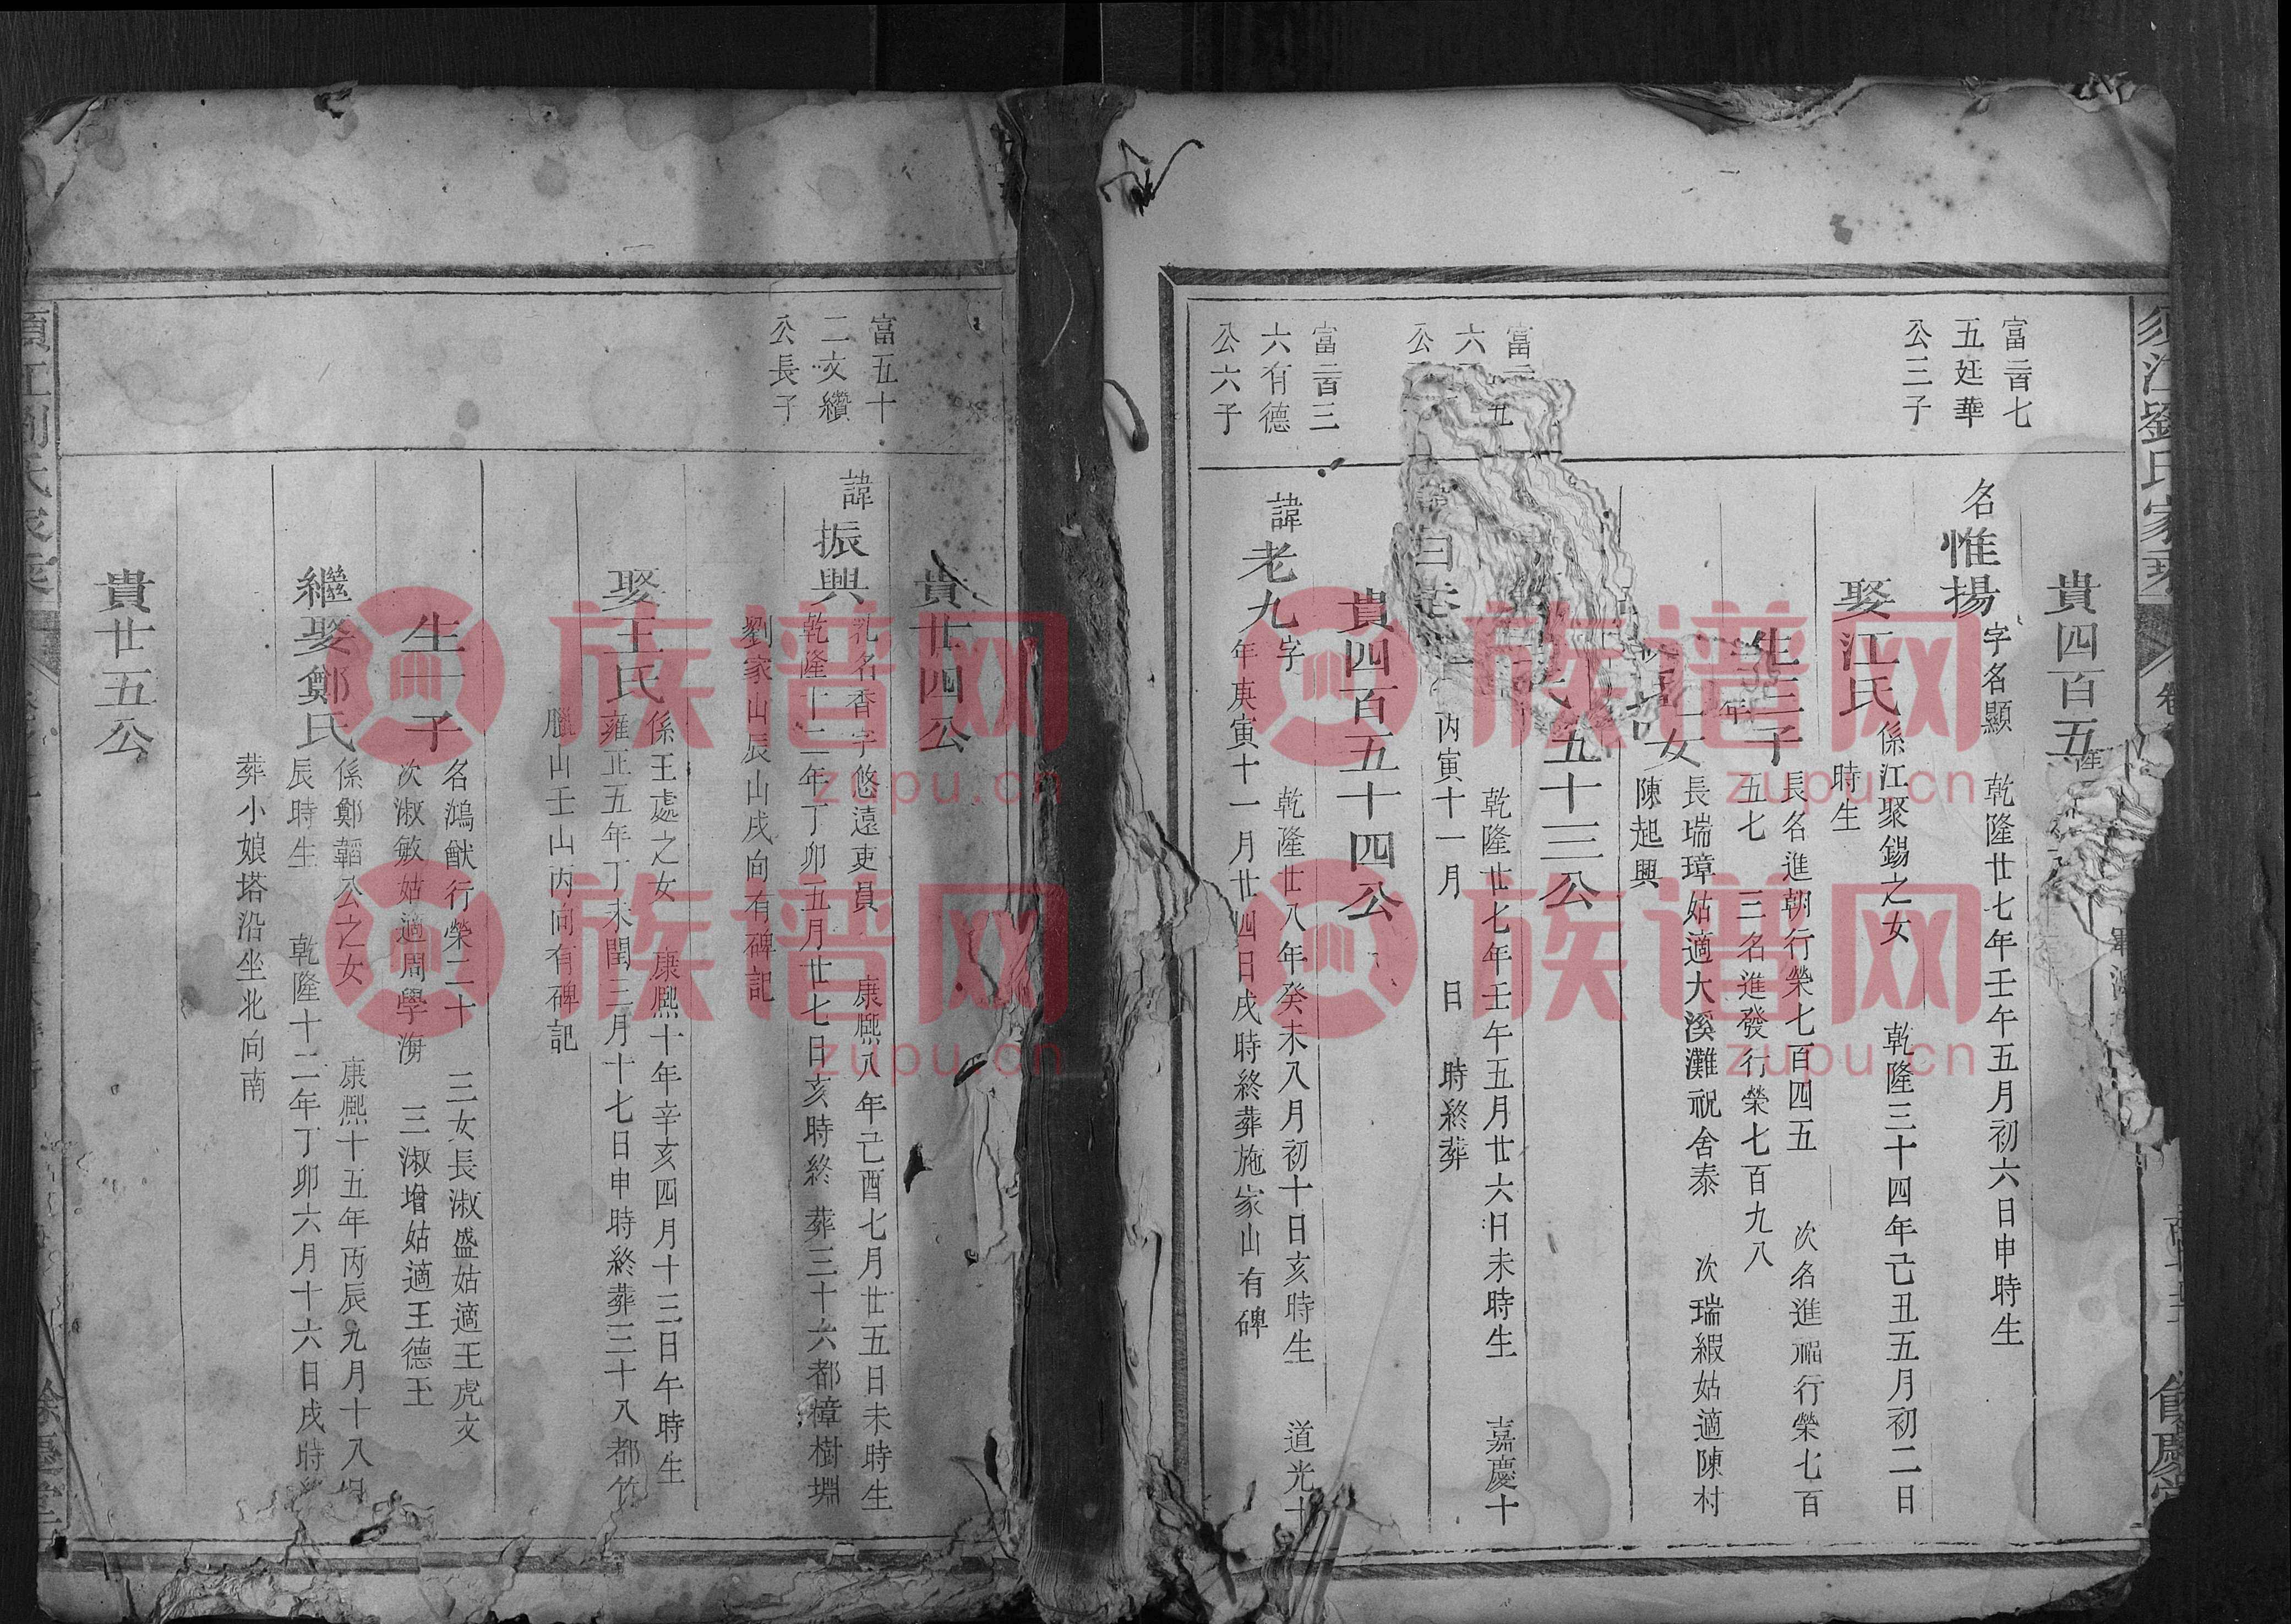 須江劉氏家乘
貴四百五
富二百七
五廷華
公三子
名惟揚字名顯 乾隆廿七年壬午五月初六日申時生
娶江氏係江聚錫之女 乾隆三十四年己丑五月初二日
時生
生三子長名進朝行榮七百四五 次名進福行榮七百
五七 三名進發行榮七百九八
二女長瑞璋姑適大溪灘祝舍泰 次瑞緞姑適陳村
陳起興
五十三公
六
公
乾隆廿七年壬午五月廿六日未時生 嘉慶十
丙寅十一月 日 時終葬
貴四百五十四公
富二百三
六有德
公六子
諱老九字 乾隆廿八年癸未八月初十日亥時生 道光十
年庚寅十一月廿四日戌時終葬施家山有碑
貴廿四公
富五十
二文纘
公長子
諱振興乳名香字悠遠吏員 康熙八年己酉七月廿五日未時生
乾隆十二年丁卯五月廿七日亥時終 葬三十六都樟樹淵
劉家山辰山戌向有碑記
娶王氏係王處之女 康熙十年辛亥四月十三日午時生
雍正五年丁未閏三月十七日申時終葬三十八都竹
臘山壬山丙向有碑記
生一子名鴻猷行榮二十 三女長淑盛姑適王虎文
次淑敏姑適周學海 三淑增姑適王德玉
繼娶鄭氏係鄭韜公之女 康熙十五年丙辰九月十八日
辰時生 乾隆十二年丁卯六月十六日戌時
葬小娘塔沿坐北向南
貴廿五公
族谱网
zupu.cn
族谱网
zupu.cn
族谱网
zupu.cn
族谱网
zupu.cn